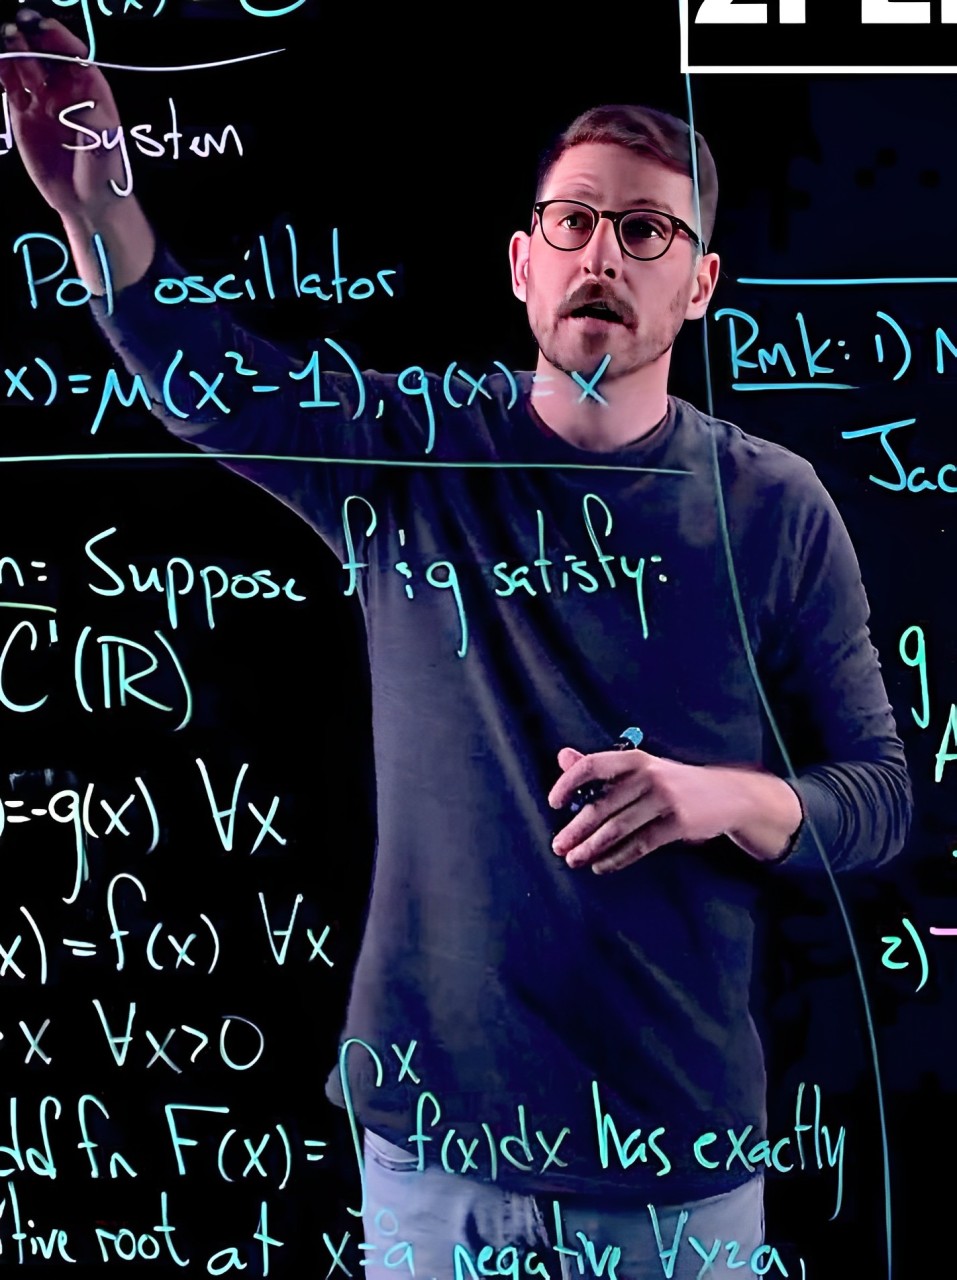 g(x)
System
Pol oscillator
x) = μ(x²-1), g(x) = x
n: Suppose f & g satisfy:
C¹(ℝ)
)=-g(x) ∀x
x) = f(x) ∀x
x ∀x>0
odd fn F(x) = ∫₀ˣ f(x)dx has exactly
tive root at x=a, negative ∀y≥a,
Rmk: 1)
Jac
g
A
2)